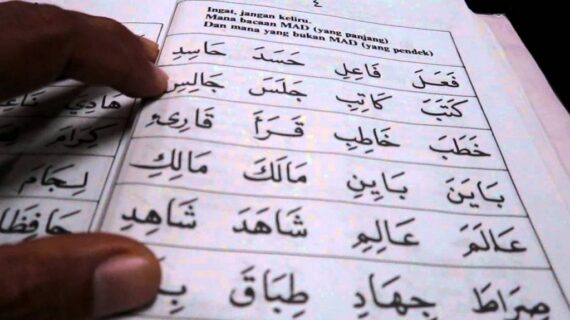 ٤
Ingat, jangan keliru.
Mana bacaan MAD (yang panjang)
Dan mana yang bukan MAD (yang pendek)
فَعَلَ فَاعِلِ حَسَدَ حَاسِدِ
كَتَبَ كَاتِبِ جَلَسَ جَالِسِ
خَطَبَ خَاطِبِ قَرَأَ قَارِئِ
بَايَنَ بَايِنِ مَالَكَ مَالِكِ
عَالَمَ عَالِمِ شَاهَدَ شَاهِدِ
صِرَاطَ جِهَادِ طِبَاقَ
هَادِيْ
كِرَامَ
لِجَامِ
حَافِظَا